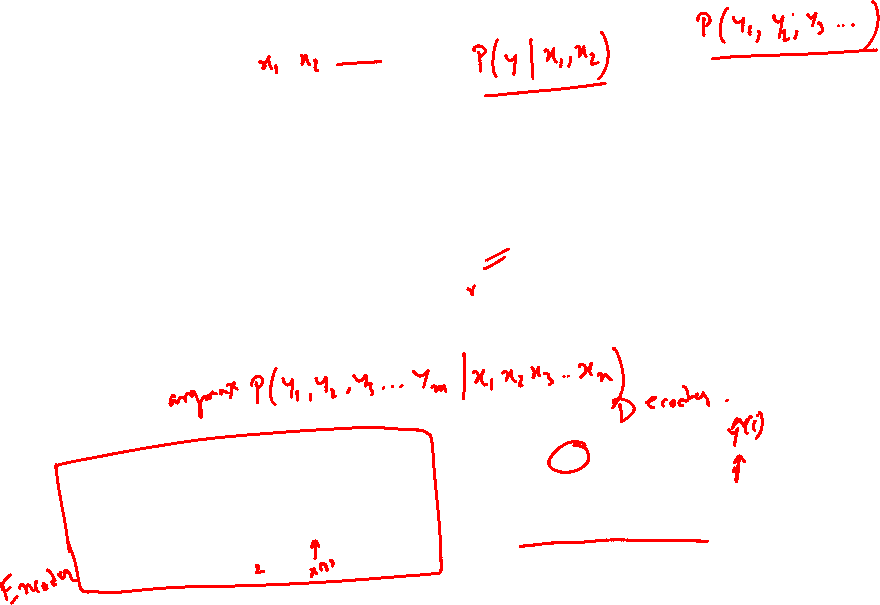 x₁ x₂ — P(y | x₁, x₂) P(y₁, y₂, y₃ ...)
argmax P(y₁, y₂, y₃ ... yₘ | x₁ x₂ x₃ .. xₙ)
Decoder.
Encoder